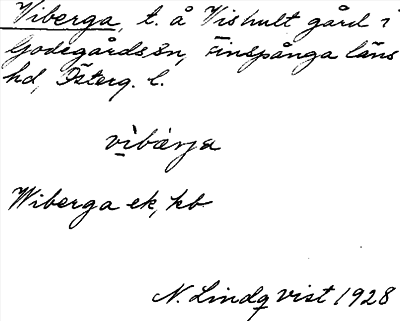 Viberga, t. å Vishult gård i
Godegårds sn, Finspånga läns
hd, Österg. l.
vìbærja
Wiberga ek, kb
N. Lindqvist 1928